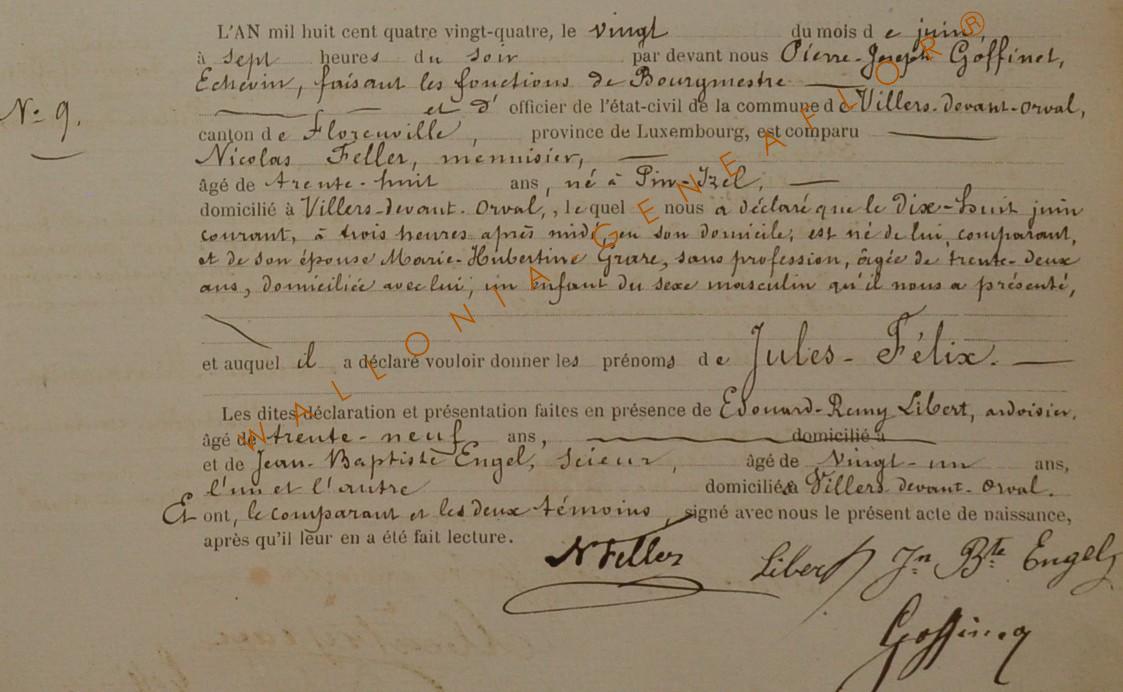 L'AN mil huit cent quatre vingt-quatre, le vingt du mois de juin,
à sept heures du soir par devant nous Pierre-Joseph Goffinet,
Echevin, faisant les fonctions de Bourgmestre
N° 9.
et d' officier de l'état-civil de la commune de Villers-devant-Orval,
canton de Florenville, province de Luxembourg, est comparu
Nicolas Feller, menuisier,
âgé de trente-huit ans, né à Pin-Izel,
domicilié à Villers-devant-Orval, lequel nous a déclaré que le dix-huit juin
courant, à trois heures après midi, en son domicile, est né de lui, comparant,
et de son épouse Marie-Hubertine Grare, sans profession, âgée de trente-deux
ans, domiciliée avec lui, un enfant du sexe masculin qu'il nous a présenté,
et auquel il a déclaré vouloir donner les prénoms de Jules-Félix.
Les dites déclaration et présentation faites en présence de Edouard-Remy Libert, ardoisier,
âgé de trente-neuf ans, domicilié à
et de Jean-Baptiste Engel, scieur, âgé de vingt-un ans,
l'un et l'autre domiciliés à Villers-devant-Orval.
Et ont, le comparant et les deux témoins, signé avec nous le présent acte de naissance,
après qu'il leur en a été fait lecture.
N Feller Libert Jn Bte Engel
Goffinet
WALLONIA GENEAFLOR ®